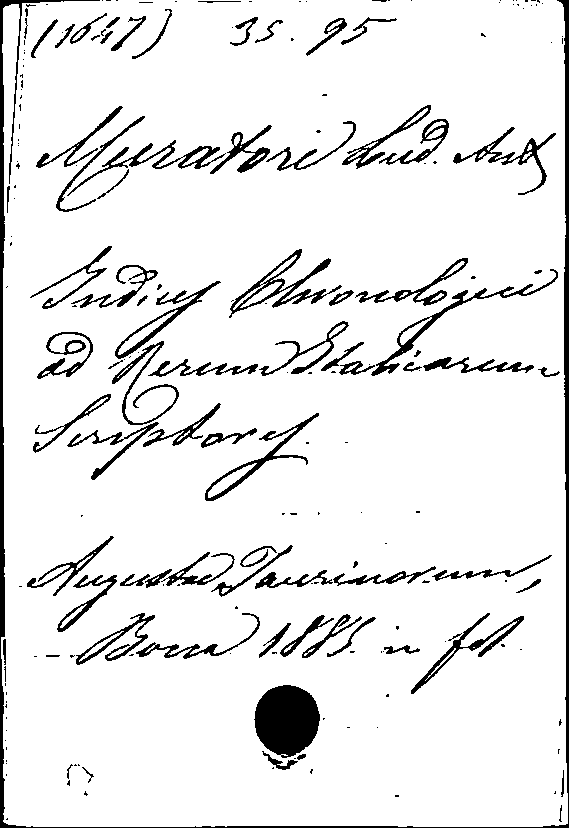 (1647) 35. 95
Muratori Lud. Ant
Indices Chronologici
ad Rerum Italicarum
Scriptores.
Augustae Taurinorum,
Bocca 1885. in fol.